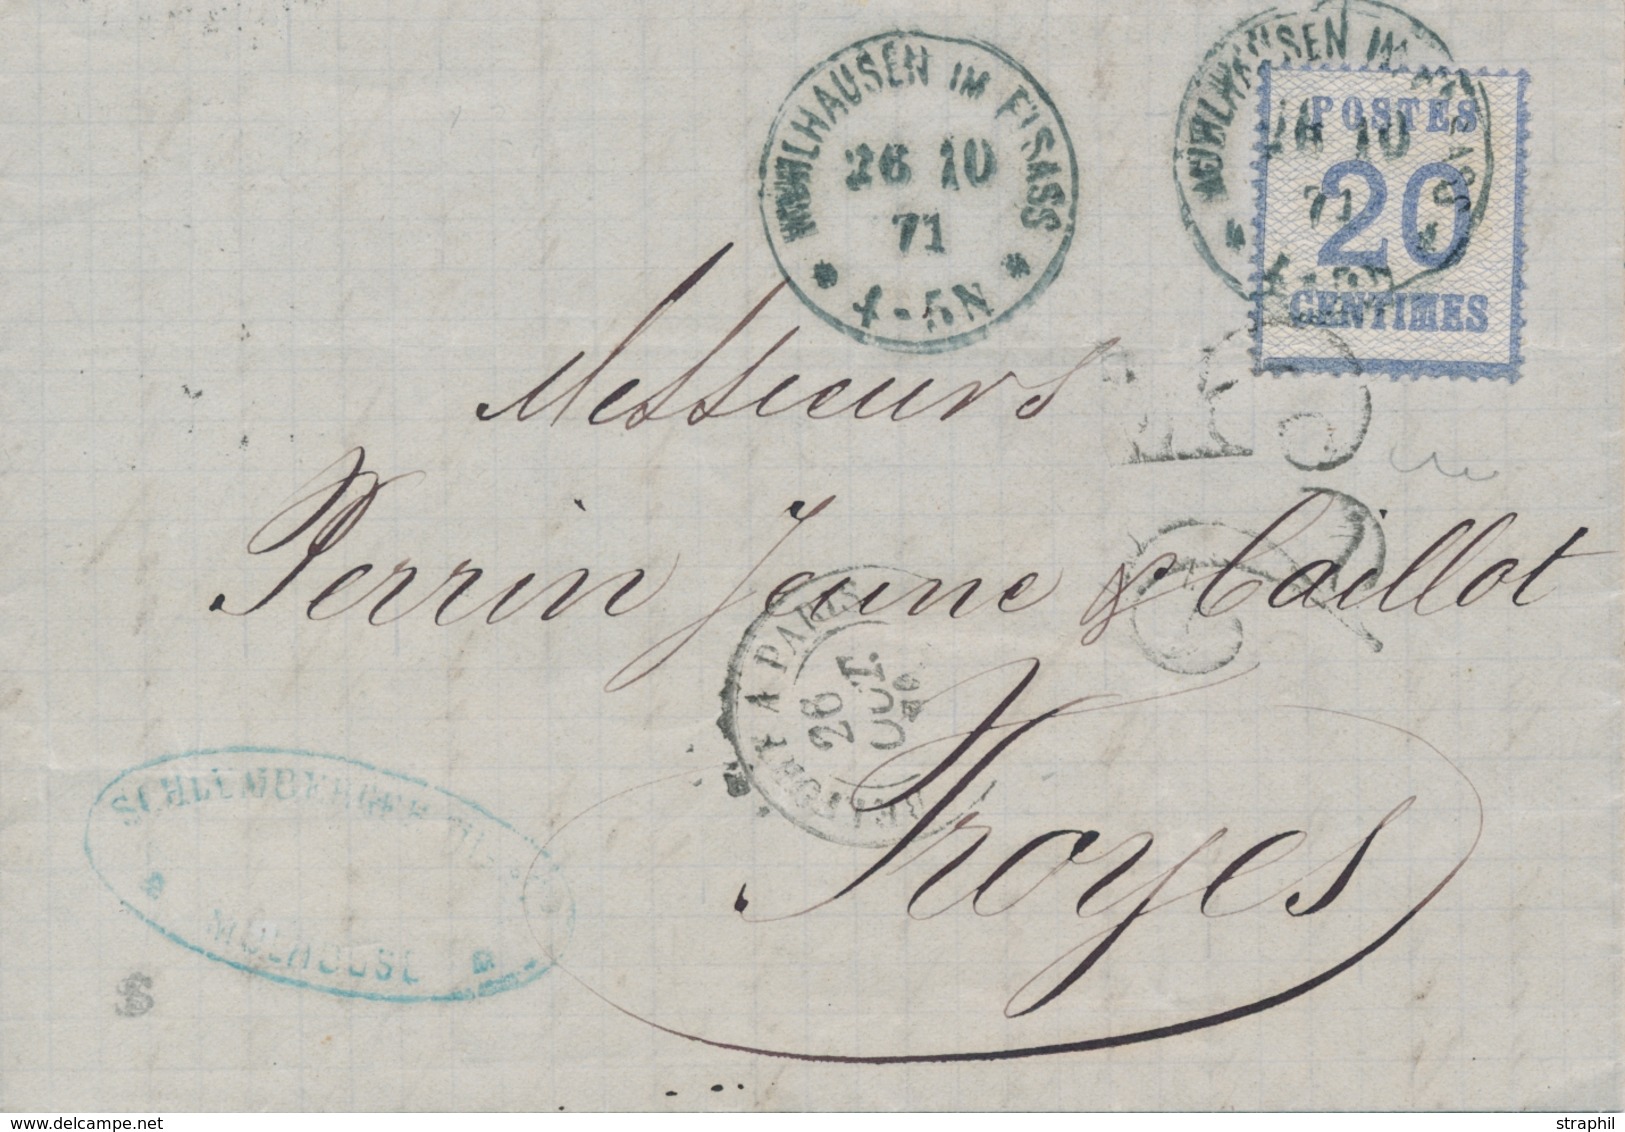 MÜHLHAUSEN IM ELSASS
26 10
71
4-5N
MÜHLHAUSEN IM ELSASS
26 10
71
4-5N
POSTES
20
CENTIMES
Messieurs
Perrin Jeune & Caillot
Troyes
BELFORT A PARIS
26
OCT.
SCHLUMBERGER
MULHOUSE
straphil
delcampe.net